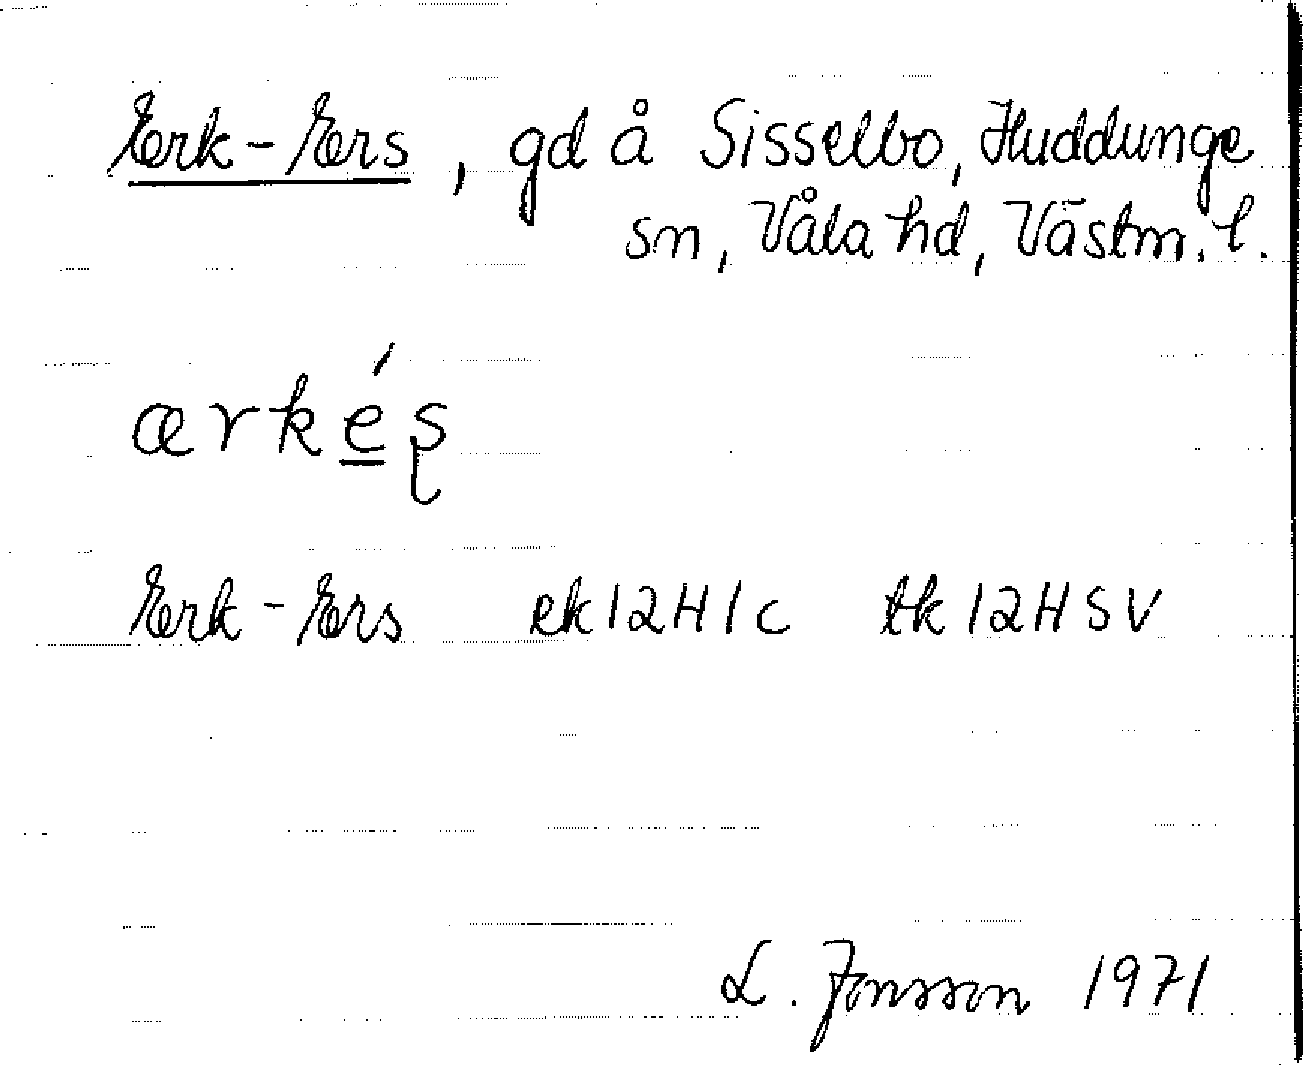 Ærk-Ærs, gd å Sisselbo, Huddunge
sn, Våla hd, Västm. l.
ærkés̨
Ærk-Ærs ek12H1c tk12HSV
L. Jonsson 1971